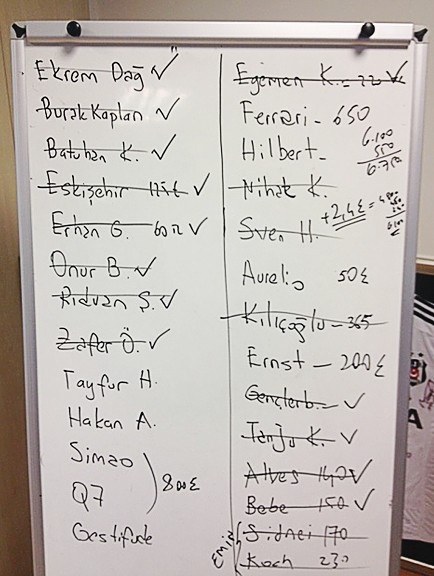 Ekrem Dağ ✓
Burak Kaplan ✓
Batuhan K. ✓
Eskişehir ✓
Erhan G. ✓
Onur B. ✓
Rıdvan Ş. ✓
Zafer Ö. ✓
Tayfur H.
Hakan A.
Simao
Q7
800£
Gestifude
Egemen K. - 220 ✓
Ferrari - 650
Hilbert -
6.100
6.750
Nihat K.
Sven H.
+2,4£ =
Aurelio 50£
Kılıçoğlu - 365
Ernst - 200£
Gençlerb. - ✓
Tanju K. ✓
Alves 140 ✓
Bebe 150 ✓
Sidnei 170
Koch 230